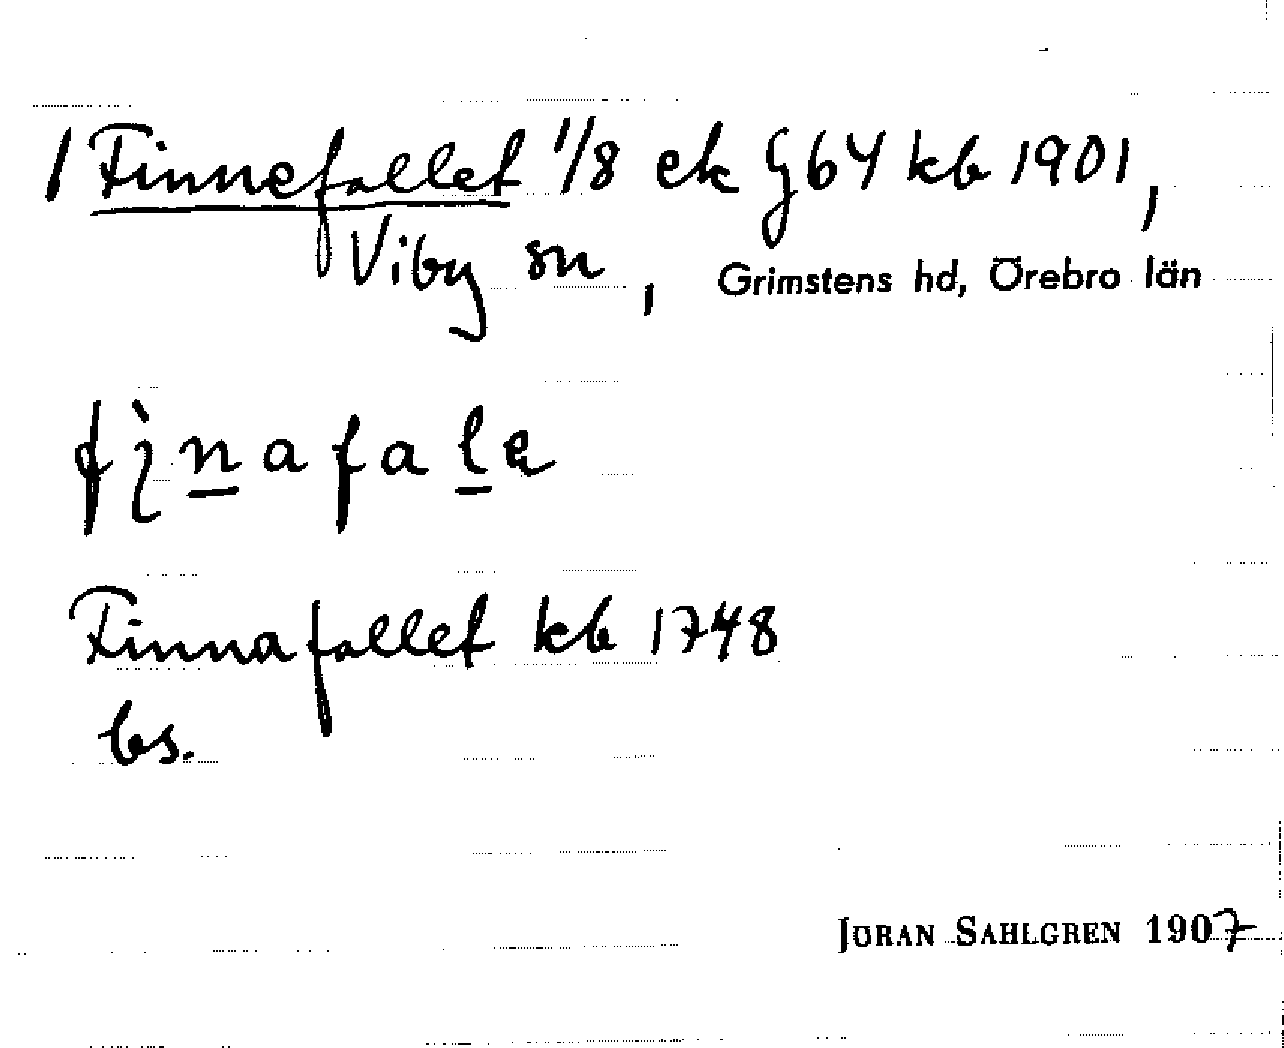 / Finnefallet 1/8 ek G64 kb 1901,
Viby sn, Grimstens hd, Örebro län
Finnafallet kb 1748
bs.
JÖRAN SAHLGREN 1907